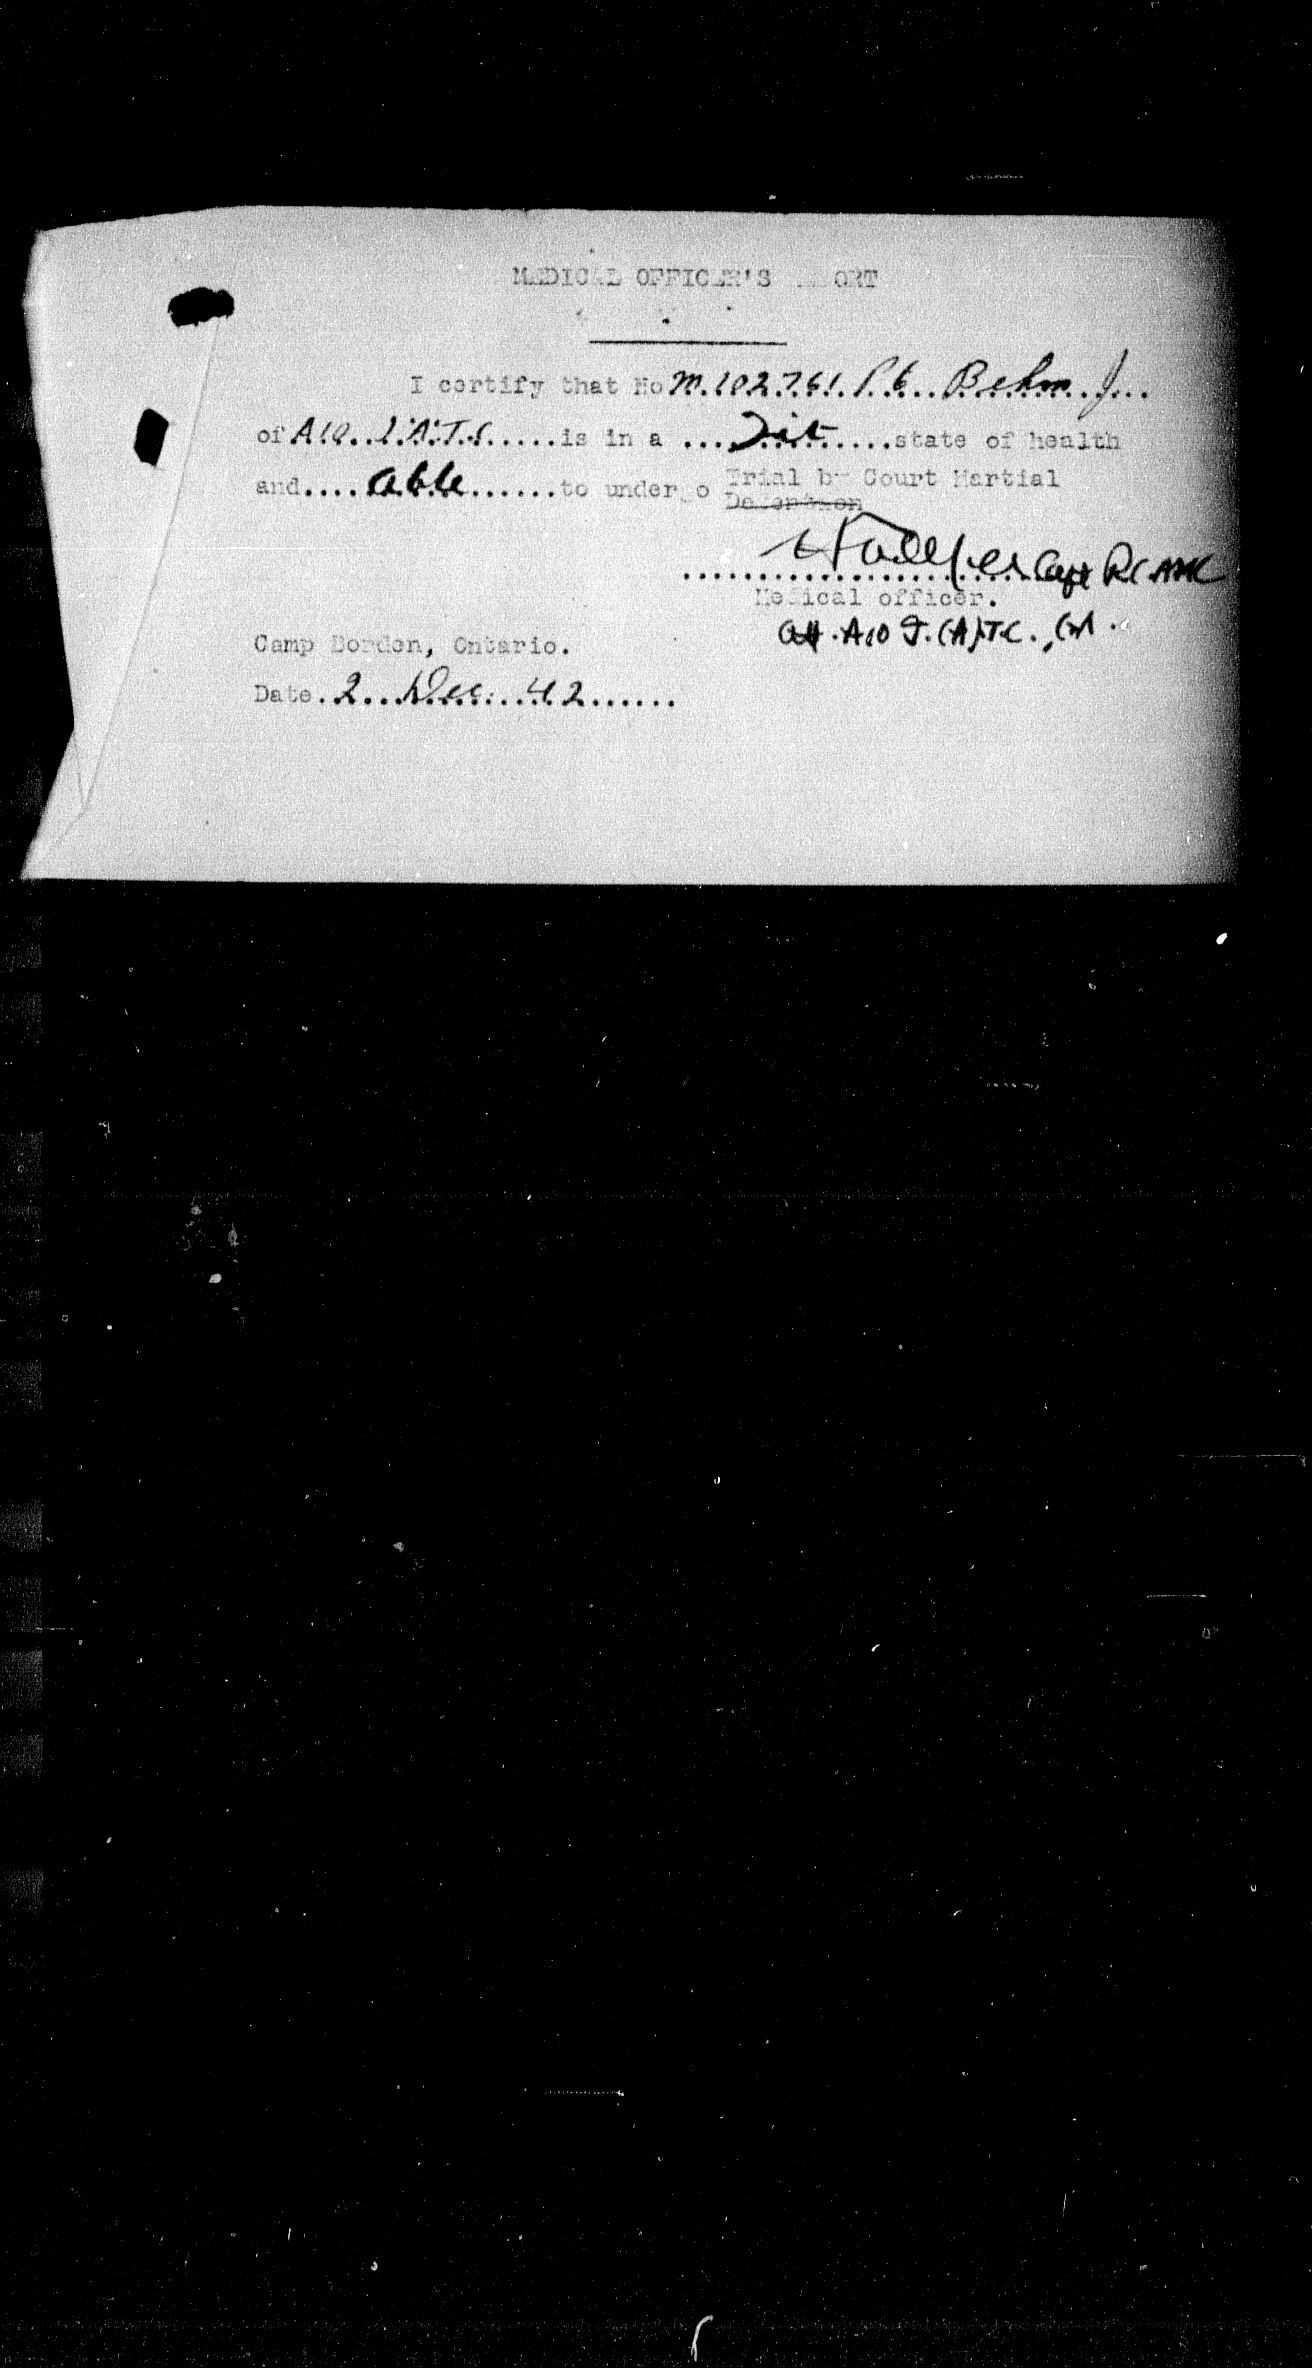 MEDICAL OFFICER'S REPORT
I certify that No M.102761. Pte. Behm. J...
of A10. I.A.T.C......is in a ....Fit.........state of health
and....able.......to undergo Trial by Court Martial
Detention
Capt RCAMC
Medical officer.
att. A10 I.(A)T.C.,
Camp Borden, Ontario.
Date.2...Dec...42......